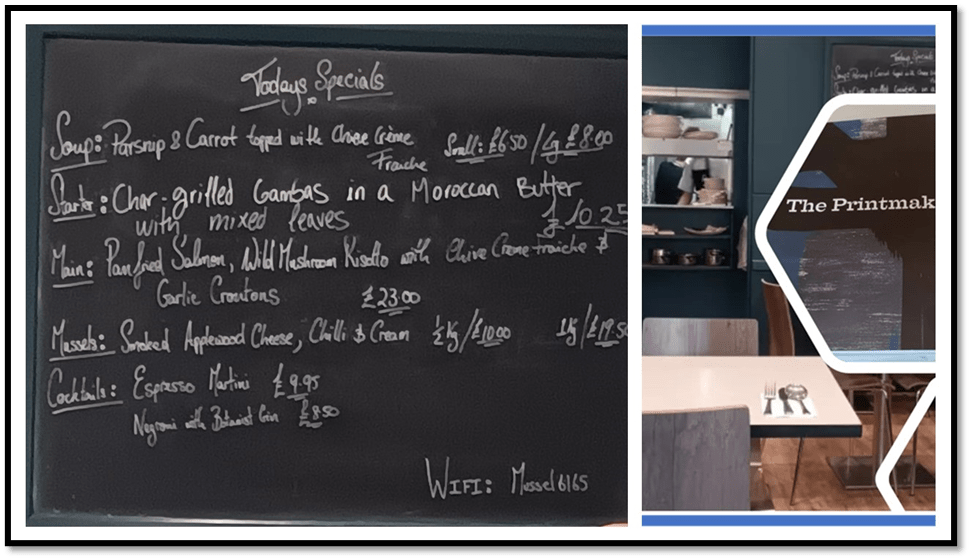 Todays Specials
Soup: Parsnip & Carrot topped with Chive Crème Small: £6.50 / Lg £8.00
Fraiche
Starter: Char-grilled Gambas in a Moroccan Butter
with mixed leaves £10.25
Main: Panfried Salmon, Wild Mushroom Risotto with Chive Creme fraiche &
Garlic Croutons £23.00
Mussels: Smoked Applewood Cheese, Chilli & Cream ½ Kg/£10.00 1Kg/£19.50
Cocktails: Espresso Martini £9.95
Negroni with Botanist Gin £8.50
WIFI: Mussel6165
Todays Specials
The Printmak